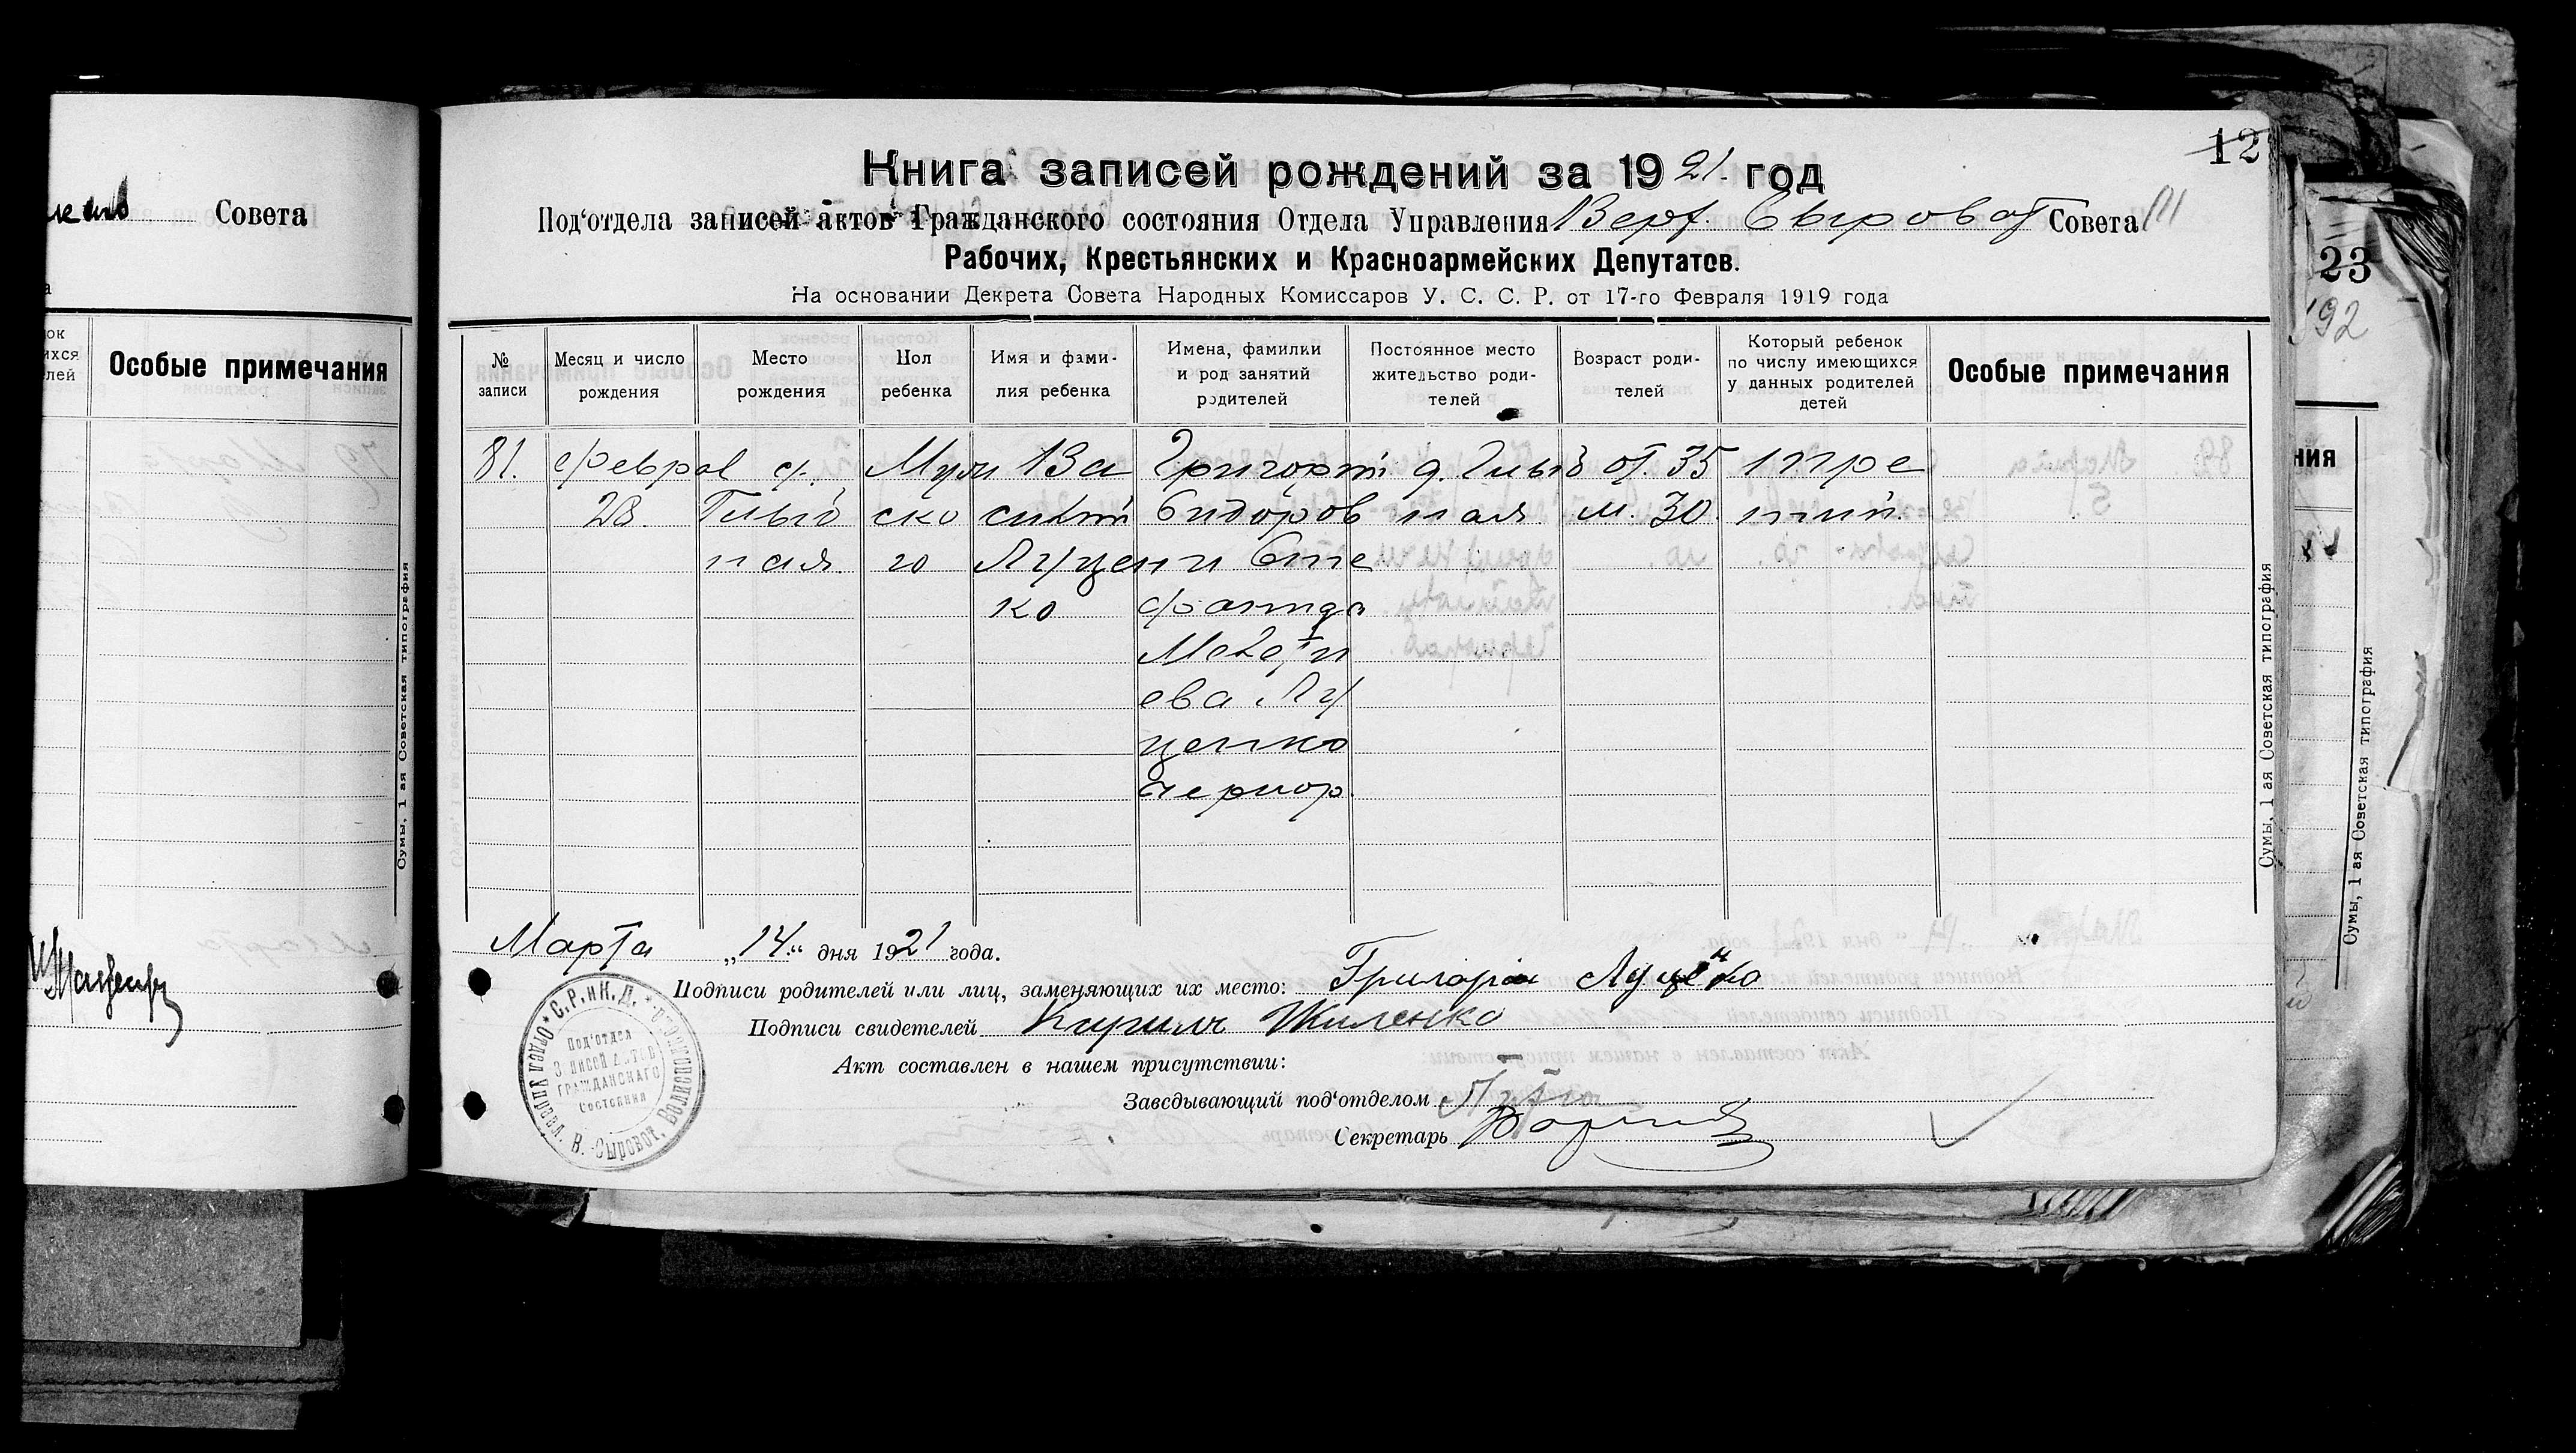 Совета
Особые примечания
Сумы, 1 ая Советская типография
12
Книга записей рождений за 1921. год
Под‘отдела записей актов Гражданского состояния Отдела Управления Верх. Сыроват Совета
Рабочих, Крестьянских и Красноармейских Депутатов.
На основании Декрета Совета Народных Комиссаров У. С. С. Р. от 17-го Февраля 1919 года
№ записи
Месяц и число рождения
Место рождения
Пол ребенка
Имя и фами-
лия ребенка
Имена, фамилии
и род занятий
родителей
Постоянное место
жительство роди-
телей
Возраст роди-
телей
Который ребенок
по числу имеющихся
у данных родителей
детей
Особые примечания
81.
феврал
28.
с.
Гным
ная
Муж
ско
го
Ва
силий
Луцен
ко
Григорий
Сидоров
и Сте
фанида
ева Лу
ценко
д.
ная
от. 35
м. 30.
тре
тий.
Марта „14“ дня 1921 года.
Подписи родителей или лиц, заменяющих их место: Григорій Луценко
Подписи свидетелей Кирилъ Жиленко
Акт составлен в нашем присутствии:
Заведывающий под‘отделом
Секретарь
С.Р. и К.Д.
Отдел Управл.
В.-Сыроват. Волисполкома
Под‘отдел
Записей Актов
Гражданскаго
Состояния
Сумы, 1 ая Советская типография
23
192
ния
Сумы, 1 ая Советская типография